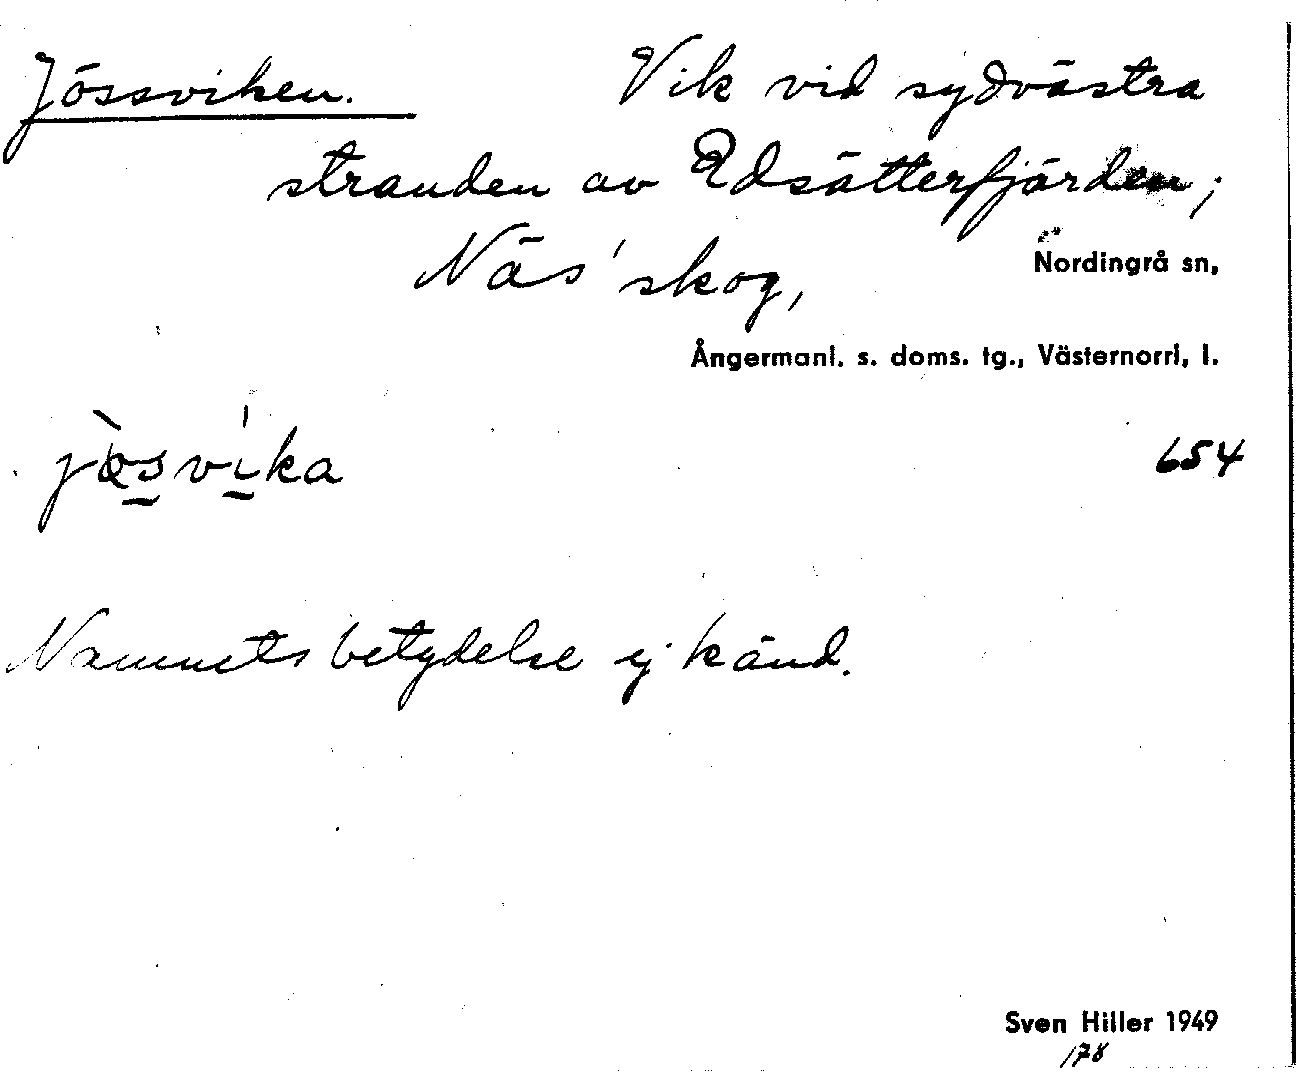 Jössviken. Vik vid sydvästra
stranden av Edsätterfjärden;
Näs' skog, Nordingrå sn,
Ångermanl. s. doms. tg., Västernorrl. l.
jòsvíka 654
Namnets betydelse ej känd.
Sven Hiller 1949
178